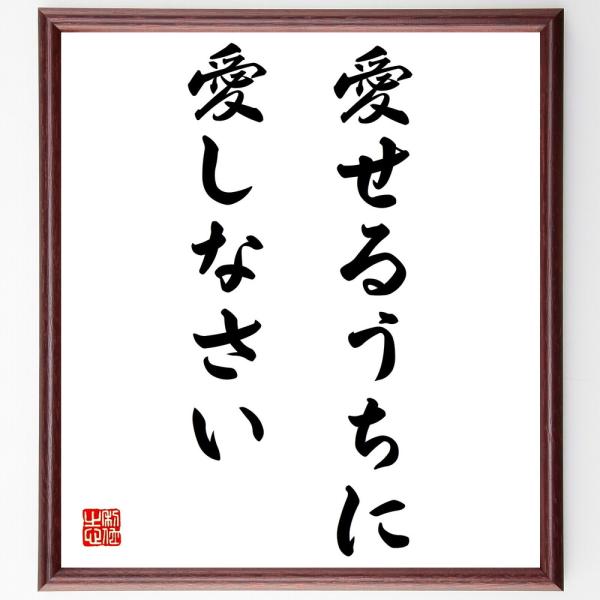 愛せるうちに
愛しなさい